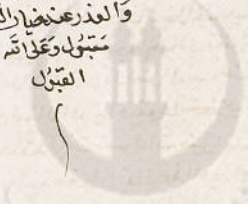 والعذر عند خيار ال
مقبول وعلى الله
القبول